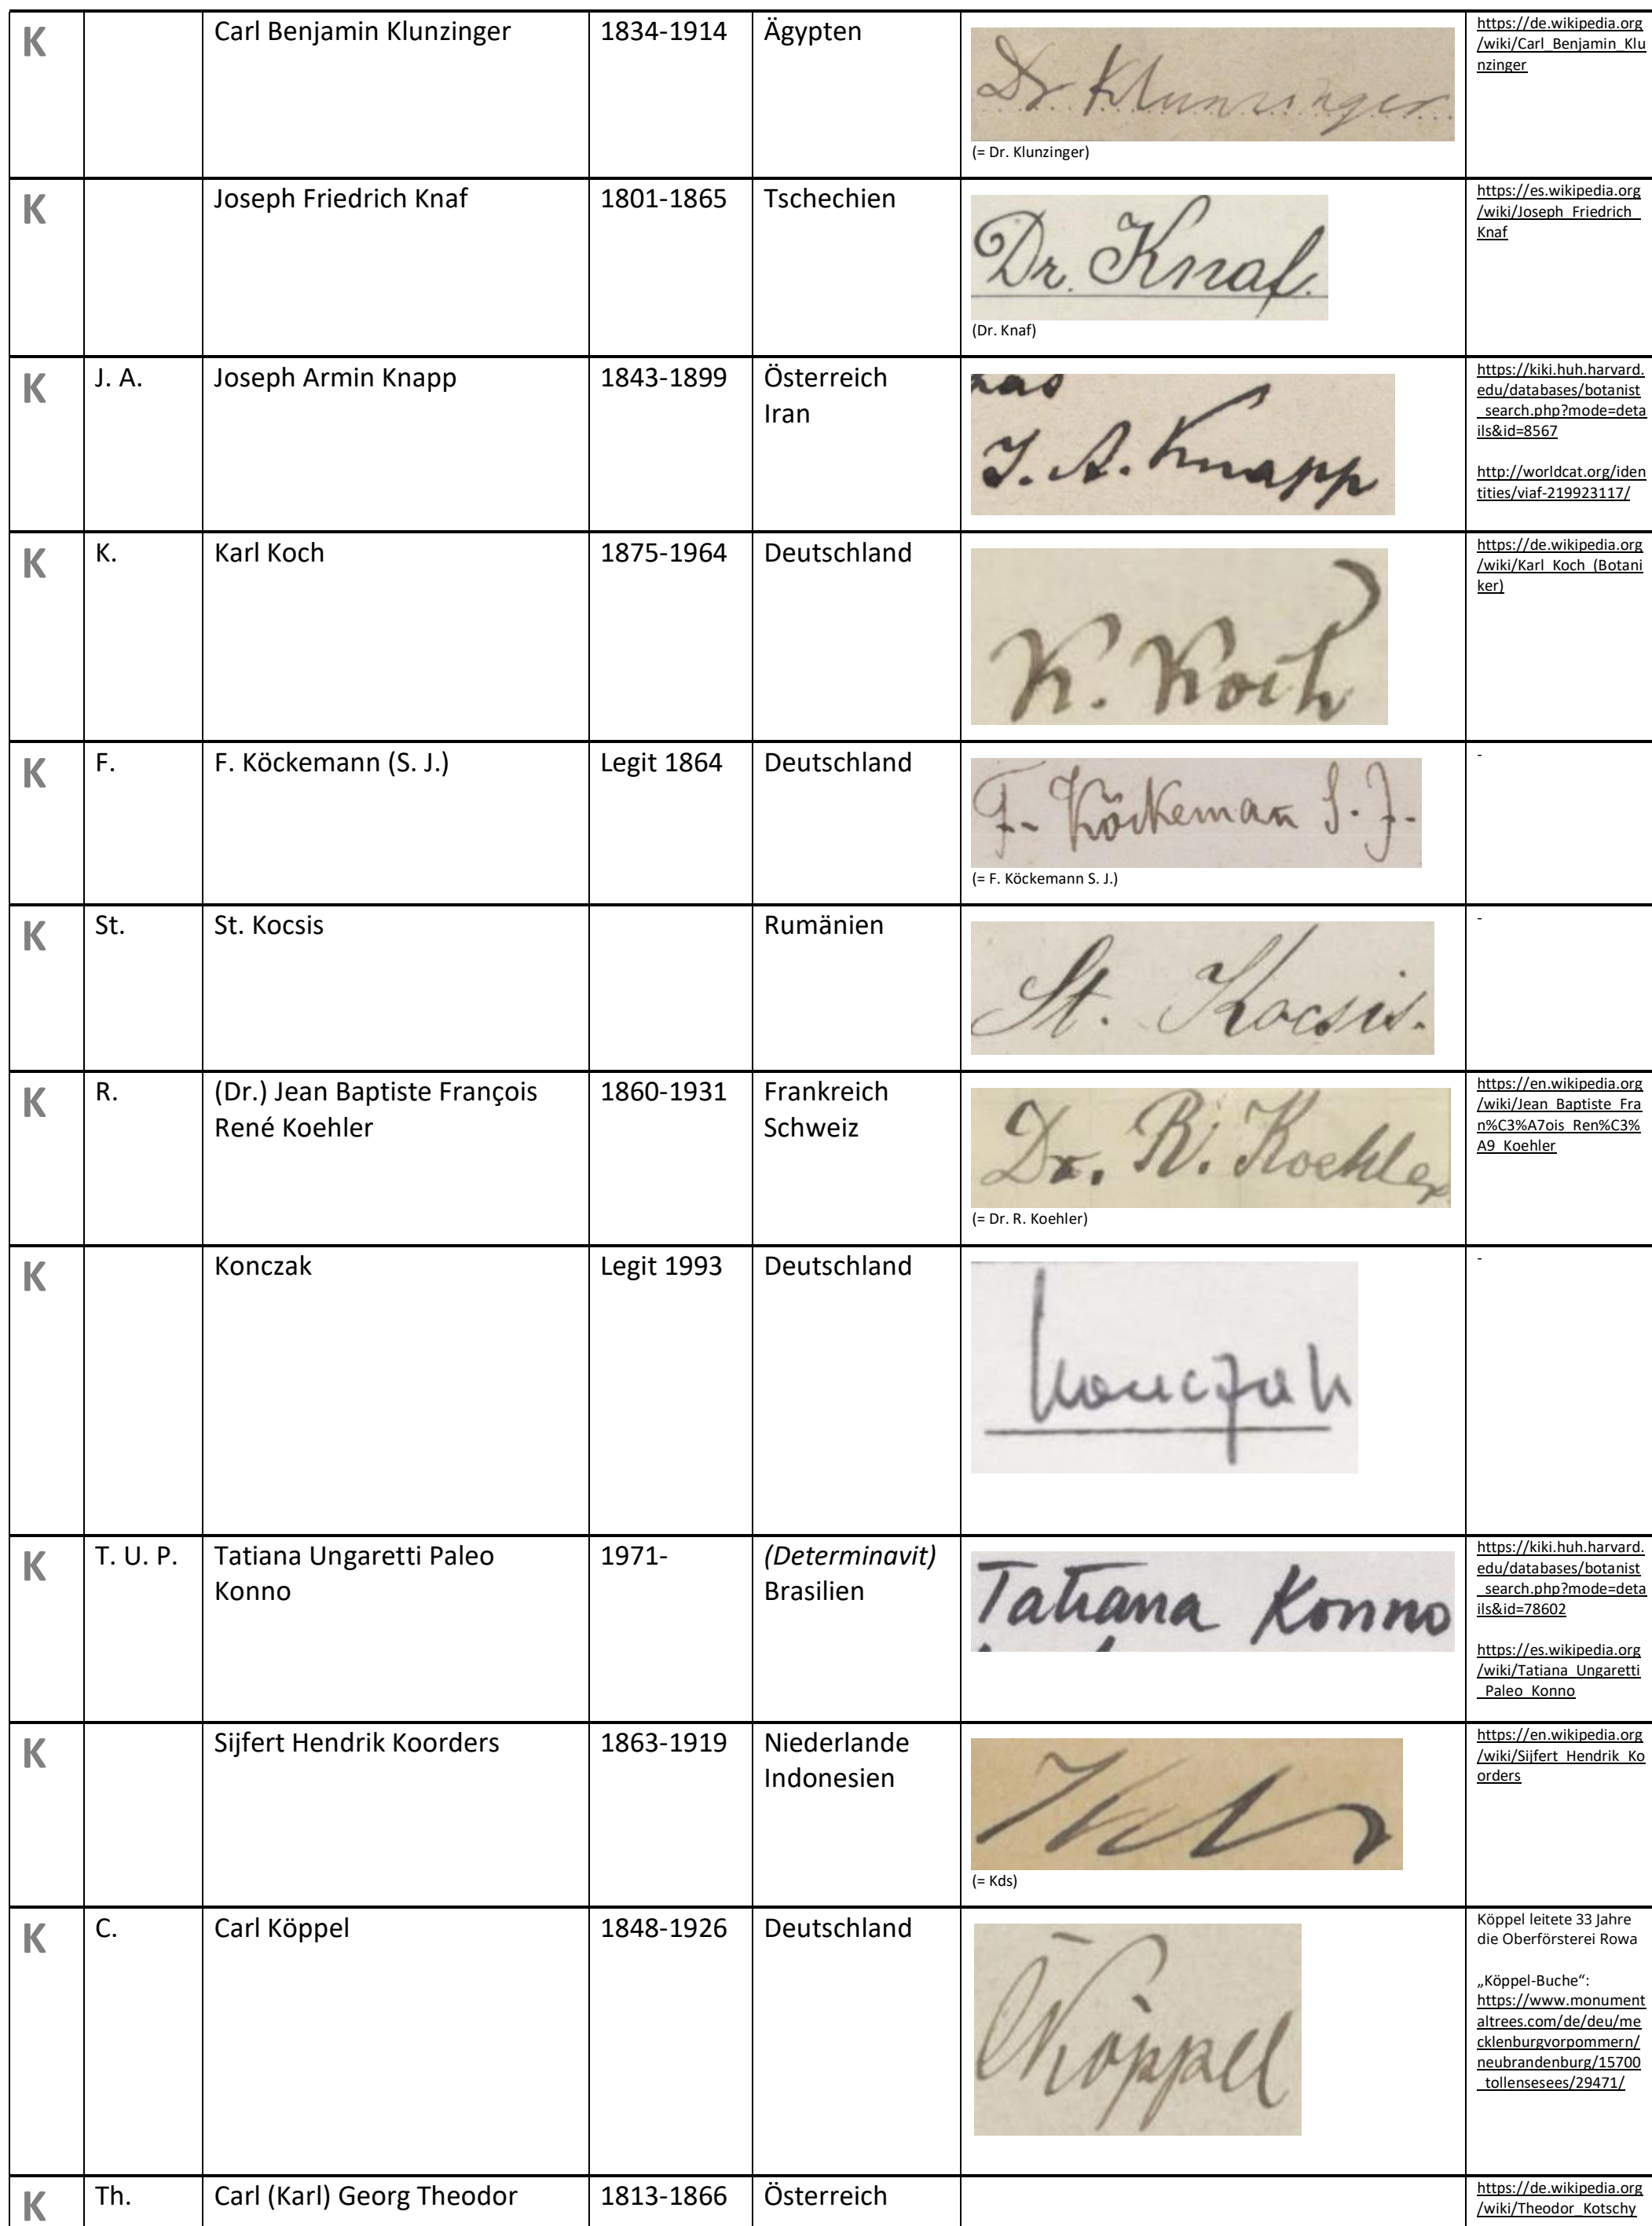 K
Carl Benjamin Klunzinger
1834-1914
Ägypten
Dr. Klunzinger
(= Dr. Klunzinger)
https://de.wikipedia.org
/wiki/Carl_Benjamin_Klu
nzinger
K
Joseph Friedrich Knaf
1801-1865
Tschechien
Dr. Knaf.
(Dr. Knaf)
https://es.wikipedia.org
/wiki/Joseph_Friedrich_
Knaf
K
J. A.
Joseph Armin Knapp
1843-1899
Österreich
Iran
J. A. Knapp
https://kiki.huh.harvard.
edu/databases/botanist
_search.php?mode=deta
ils&id=8567
http://worldcat.org/iden
tities/viaf-219923117/
K
K.
Karl Koch
1875-1964
Deutschland
K. Koch
https://de.wikipedia.org
/wiki/Karl_Koch_(Botani
ker)
K
F.
F. Köckemann (S. J.)
Legit 1864
Deutschland
F. Köckeman S. J.
(= F. Köckemann S. J.)
-
K
St.
St. Kocsis
Rumänien
St. Kocsis.
-
K
R.
(Dr.) Jean Baptiste François
René Koehler
1860-1931
Frankreich
Schweiz
Dr. R. Koehler
(= Dr. R. Koehler)
https://en.wikipedia.org
/wiki/Jean_Baptiste_Fra
n%C3%A7ois_Ren%C3%
A9_Koehler
K
Konczak
Legit 1993
Deutschland
Konczak
-
K
T. U. P.
Tatiana Ungaretti Paleo
Konno
1971-
(Determinavit)
Brasilien
Tatiana Konno
https://kiki.huh.harvard.
edu/databases/botanist
_search.php?mode=deta
ils&id=78602
https://es.wikipedia.org
/wiki/Tatiana_Ungaretti
_Paleo_Konno
K
Sijfert Hendrik Koorders
1863-1919
Niederlande
Indonesien
Kds
(= Kds)
https://en.wikipedia.org
/wiki/Sijfert_Hendrik_Ko
orders
K
C.
Carl Köppel
1848-1926
Deutschland
Köppel
Köppel leitete 33 Jahre
die Oberförsterei Rowa
„Köppel-Buche“:
https://www.monument
altrees.com/de/deu/me
cklenburgvorpommern/
neubrandenburg/15700
_tollensesees/29471/
K
Th.
Carl (Karl) Georg Theodor
1813-1866
Österreich
https://de.wikipedia.org
/wiki/Theodor_Kotschy